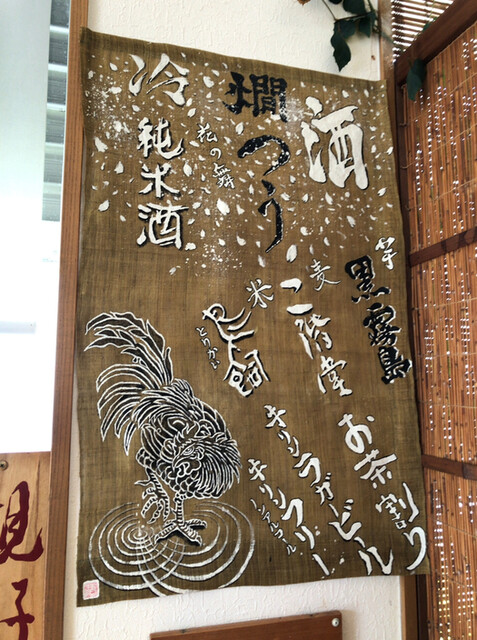 酒
燗
つう
花の舞
冷
純米酒
芋
黒霧島
麦
二階堂
米
鳥飼
とりかい
お茶割り
キリンラガービール
キリンフリー
ノンアルコール
子